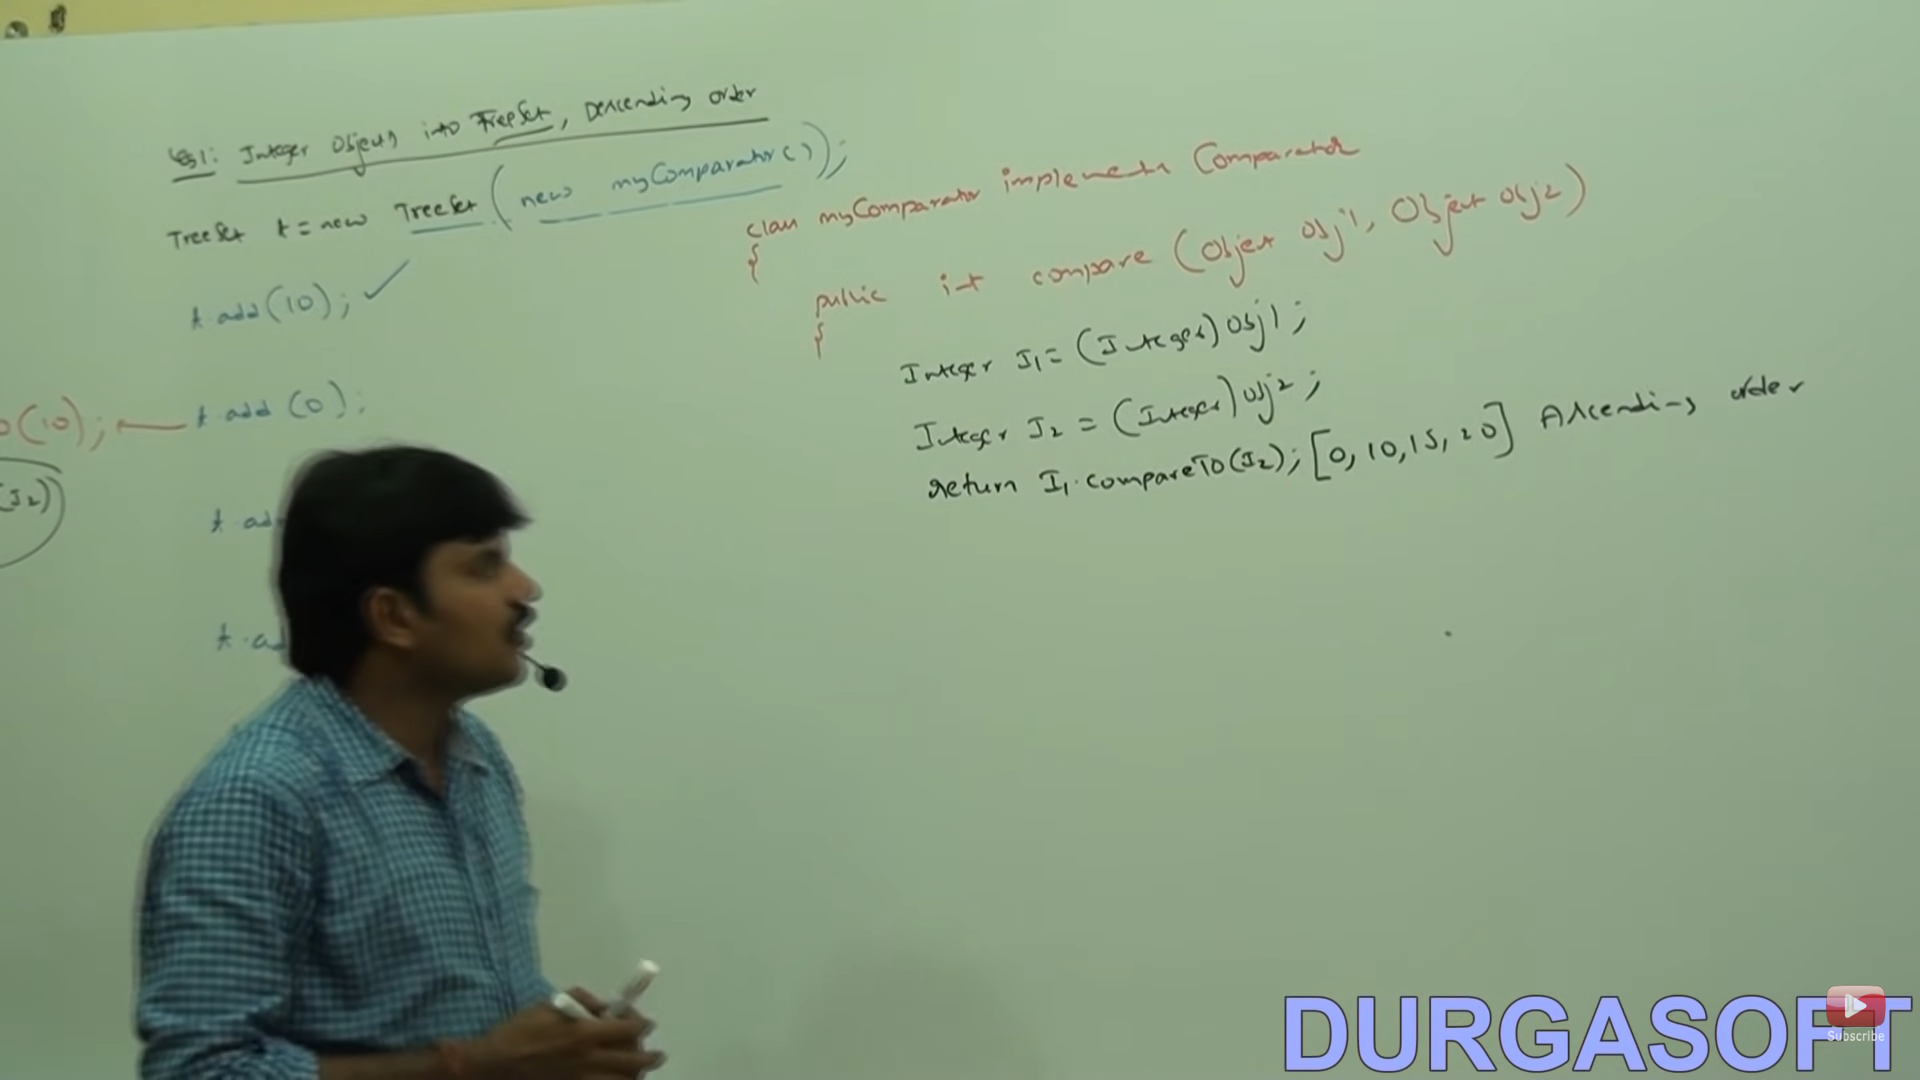 Eg1: Integer Objects into TreeSet, Descending order
TreeSet t = new TreeSet(new myComparator());
t.add(10); ✓
(10); ← t.add(0);
(I2)
t.ad
t.ad
class myComparator implements Comparator
{
public int compare (Object obj1, Object obj2)
{
Integer I1 = (Integer) obj1;
Integer I2 = (Integer) obj2;
return I1.compareTo(I2); [0, 10, 15, 20] Ascending order
DURGASOFT
Subscribe